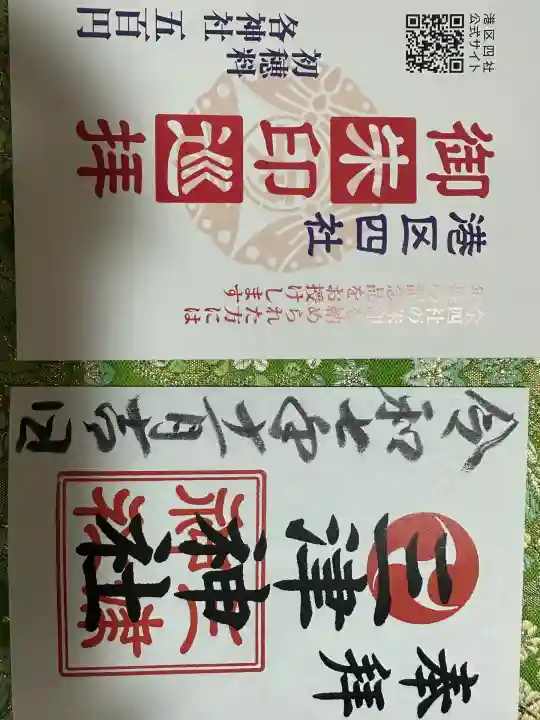 港区四社
公式サイト
御朱印巡拝
港区四社
初穂料
各神社 五百円
められた方には
をお授けします
奉拝
三津神社
三津神社
令和七年十一月吉日